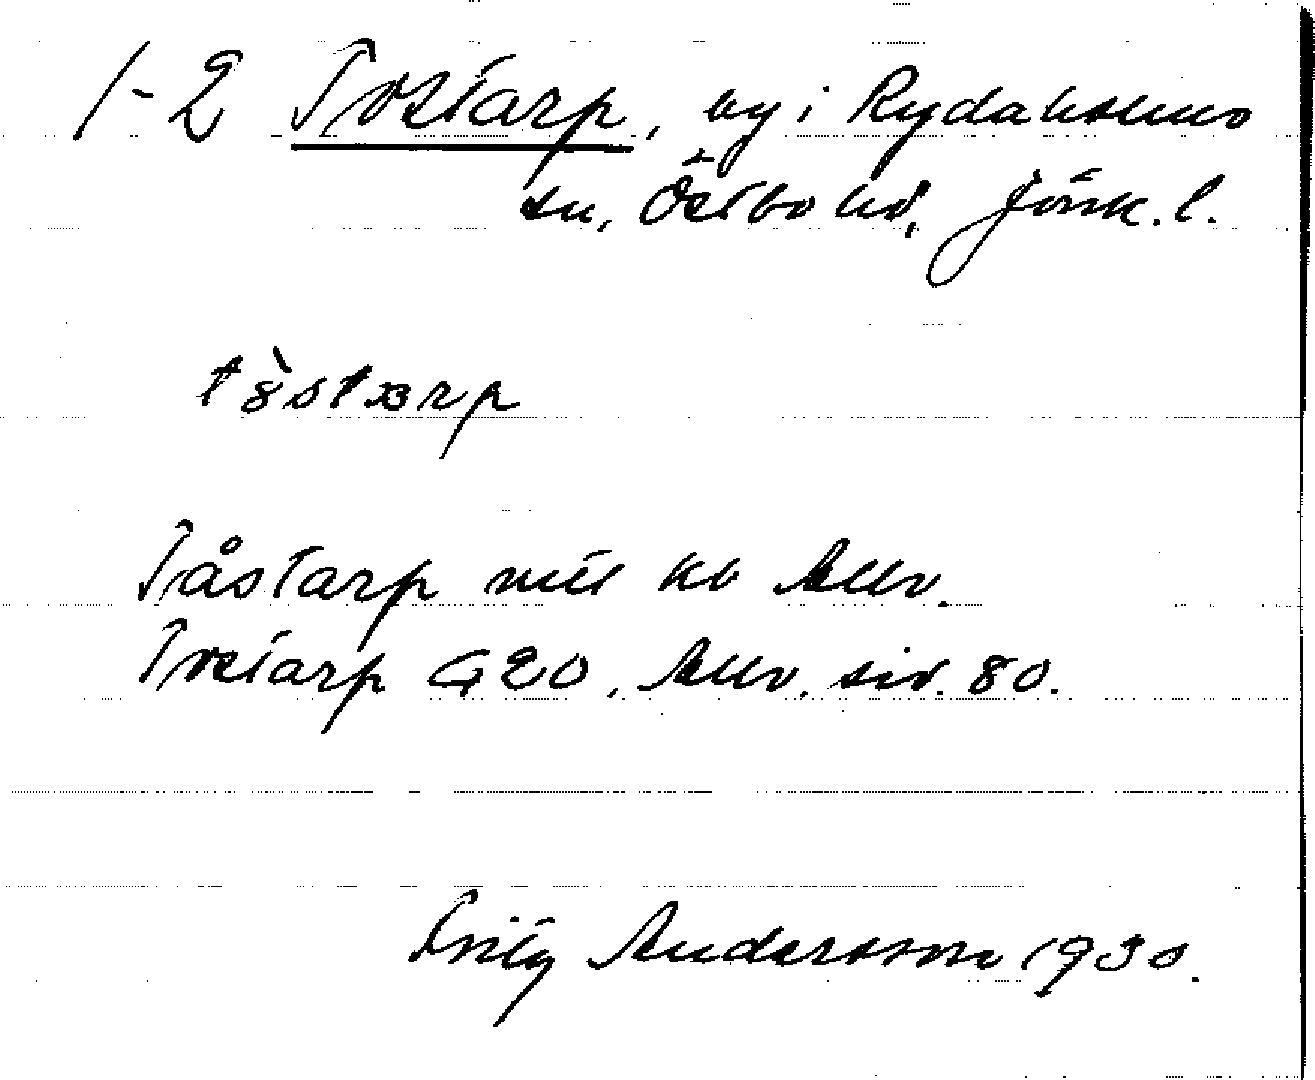 1-2 Tostarp, by i Rydaholms
sn, Östbo hd, Jönk. l.
Tåstarp uttl kb Allv.
Tostarp G20, Allv. sid. 80.
Fritz Andersson 1930.